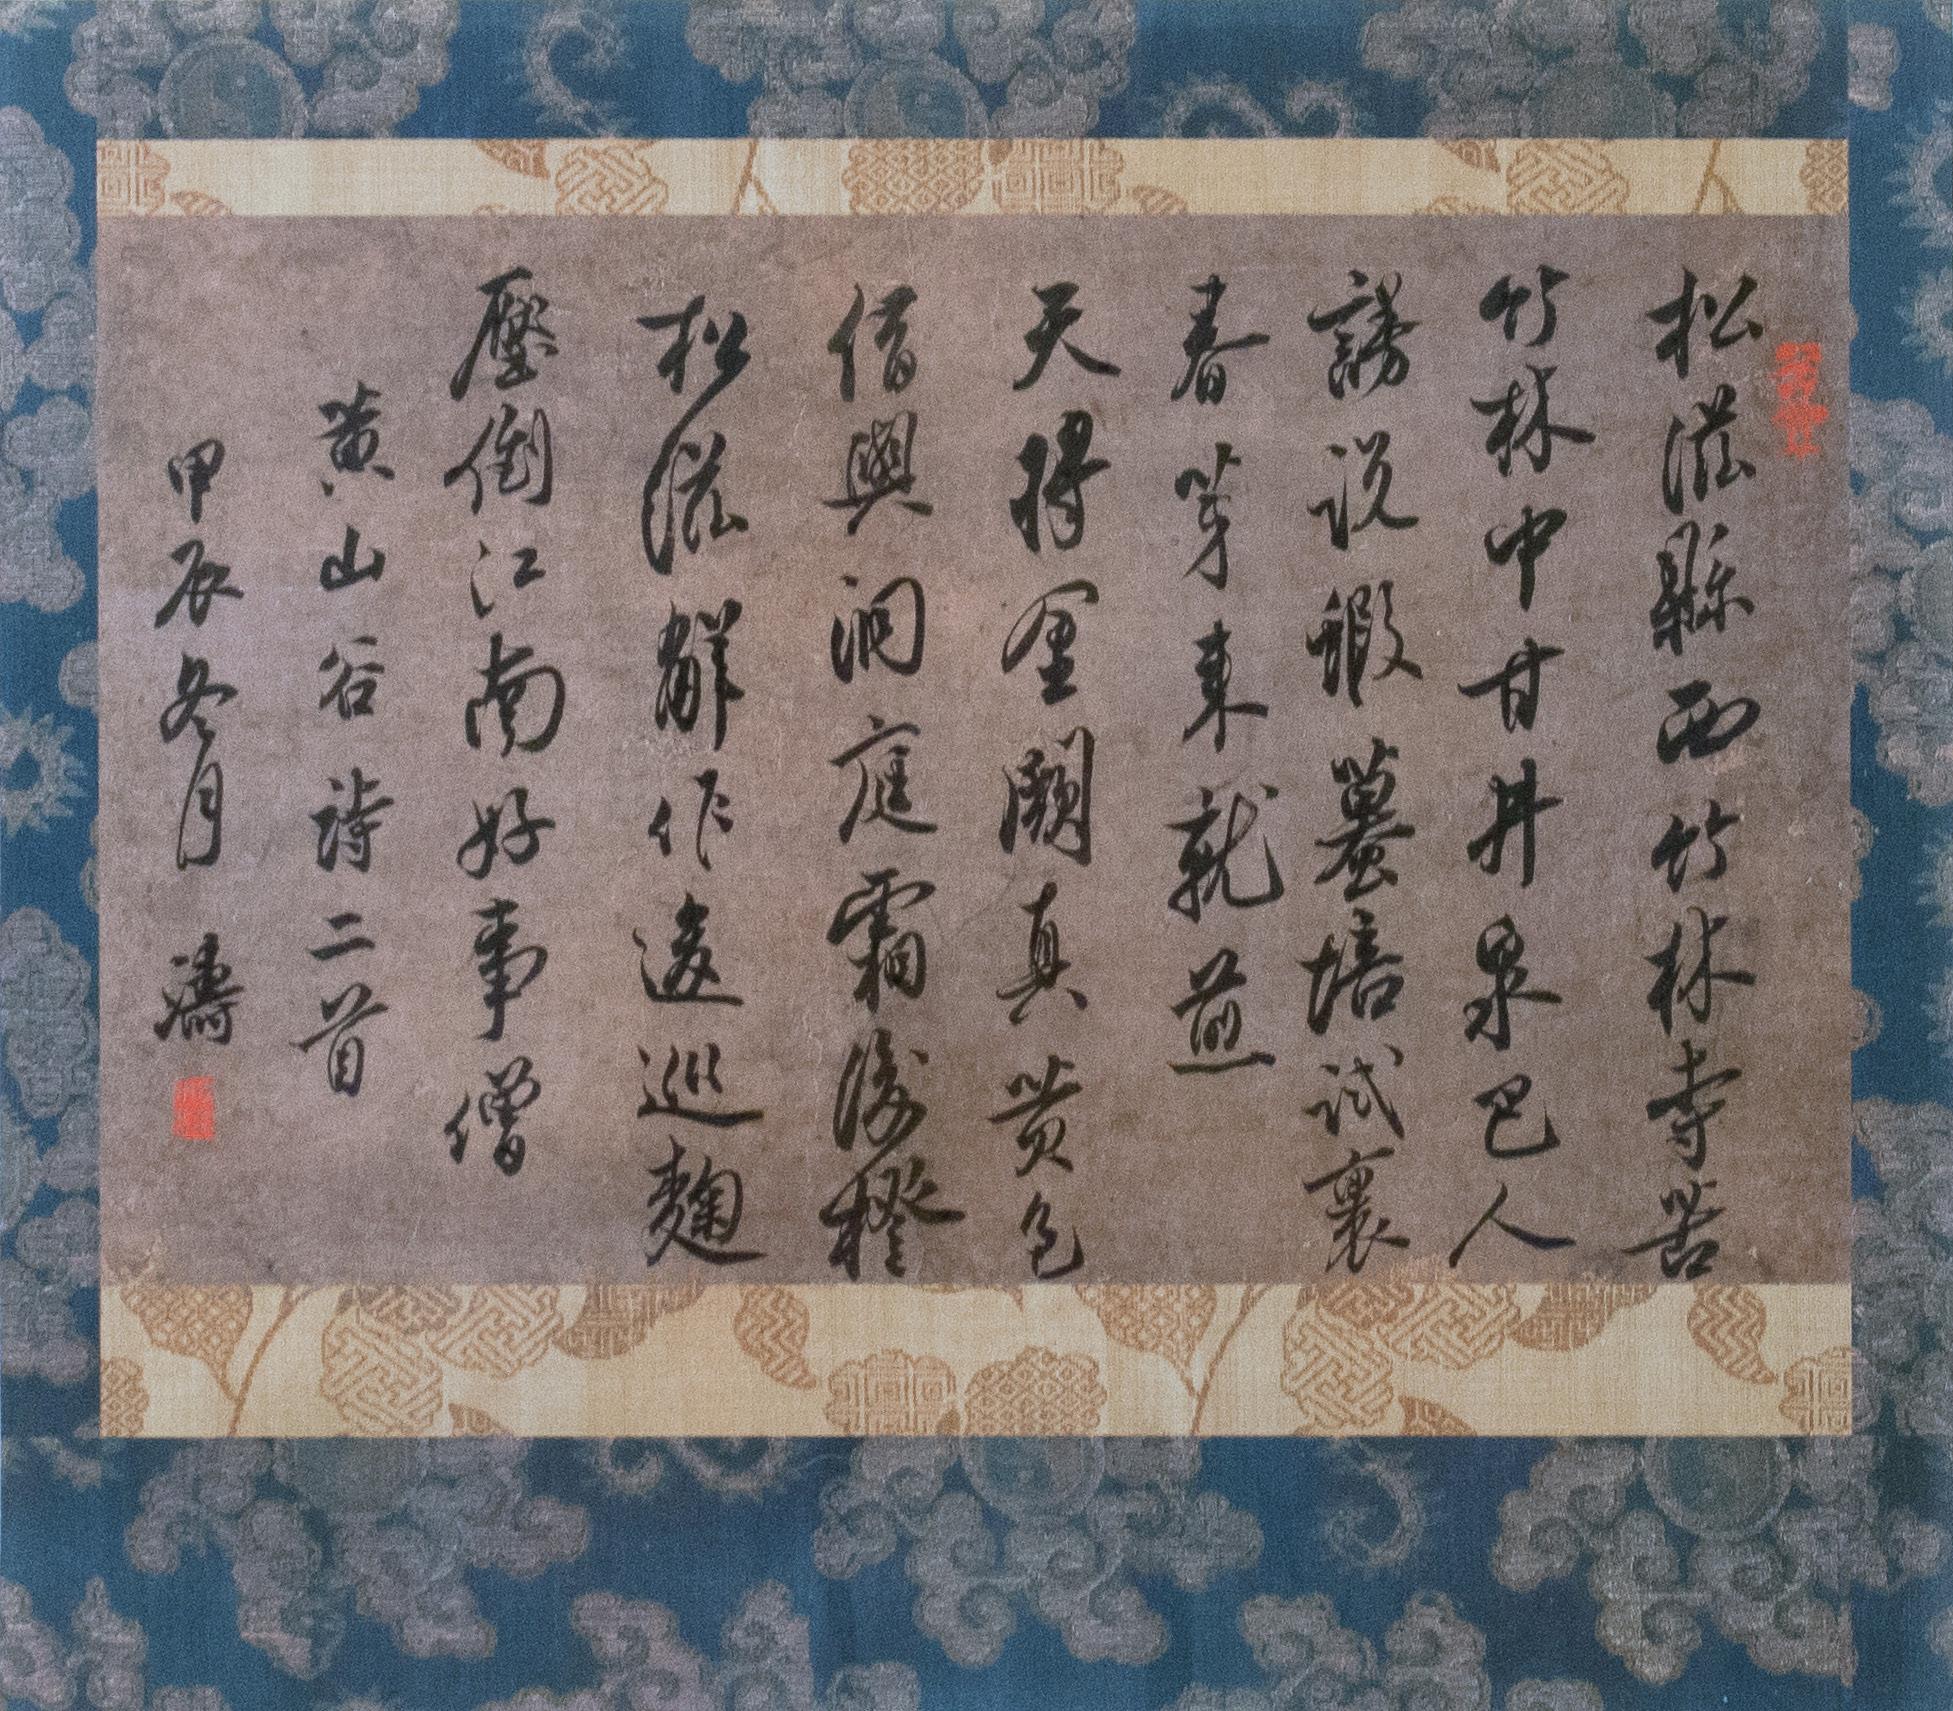 松滋縣西竹林寺苦
竹林中甘井泉巴人
謗說蝦蟇培試裹
春芽來就煎
天將金闕真黃色
借與洞庭霜後橙
松滋解作逡巡麴
壓倒江南好事僧
黃山谷詩二首
甲辰冬月 濤